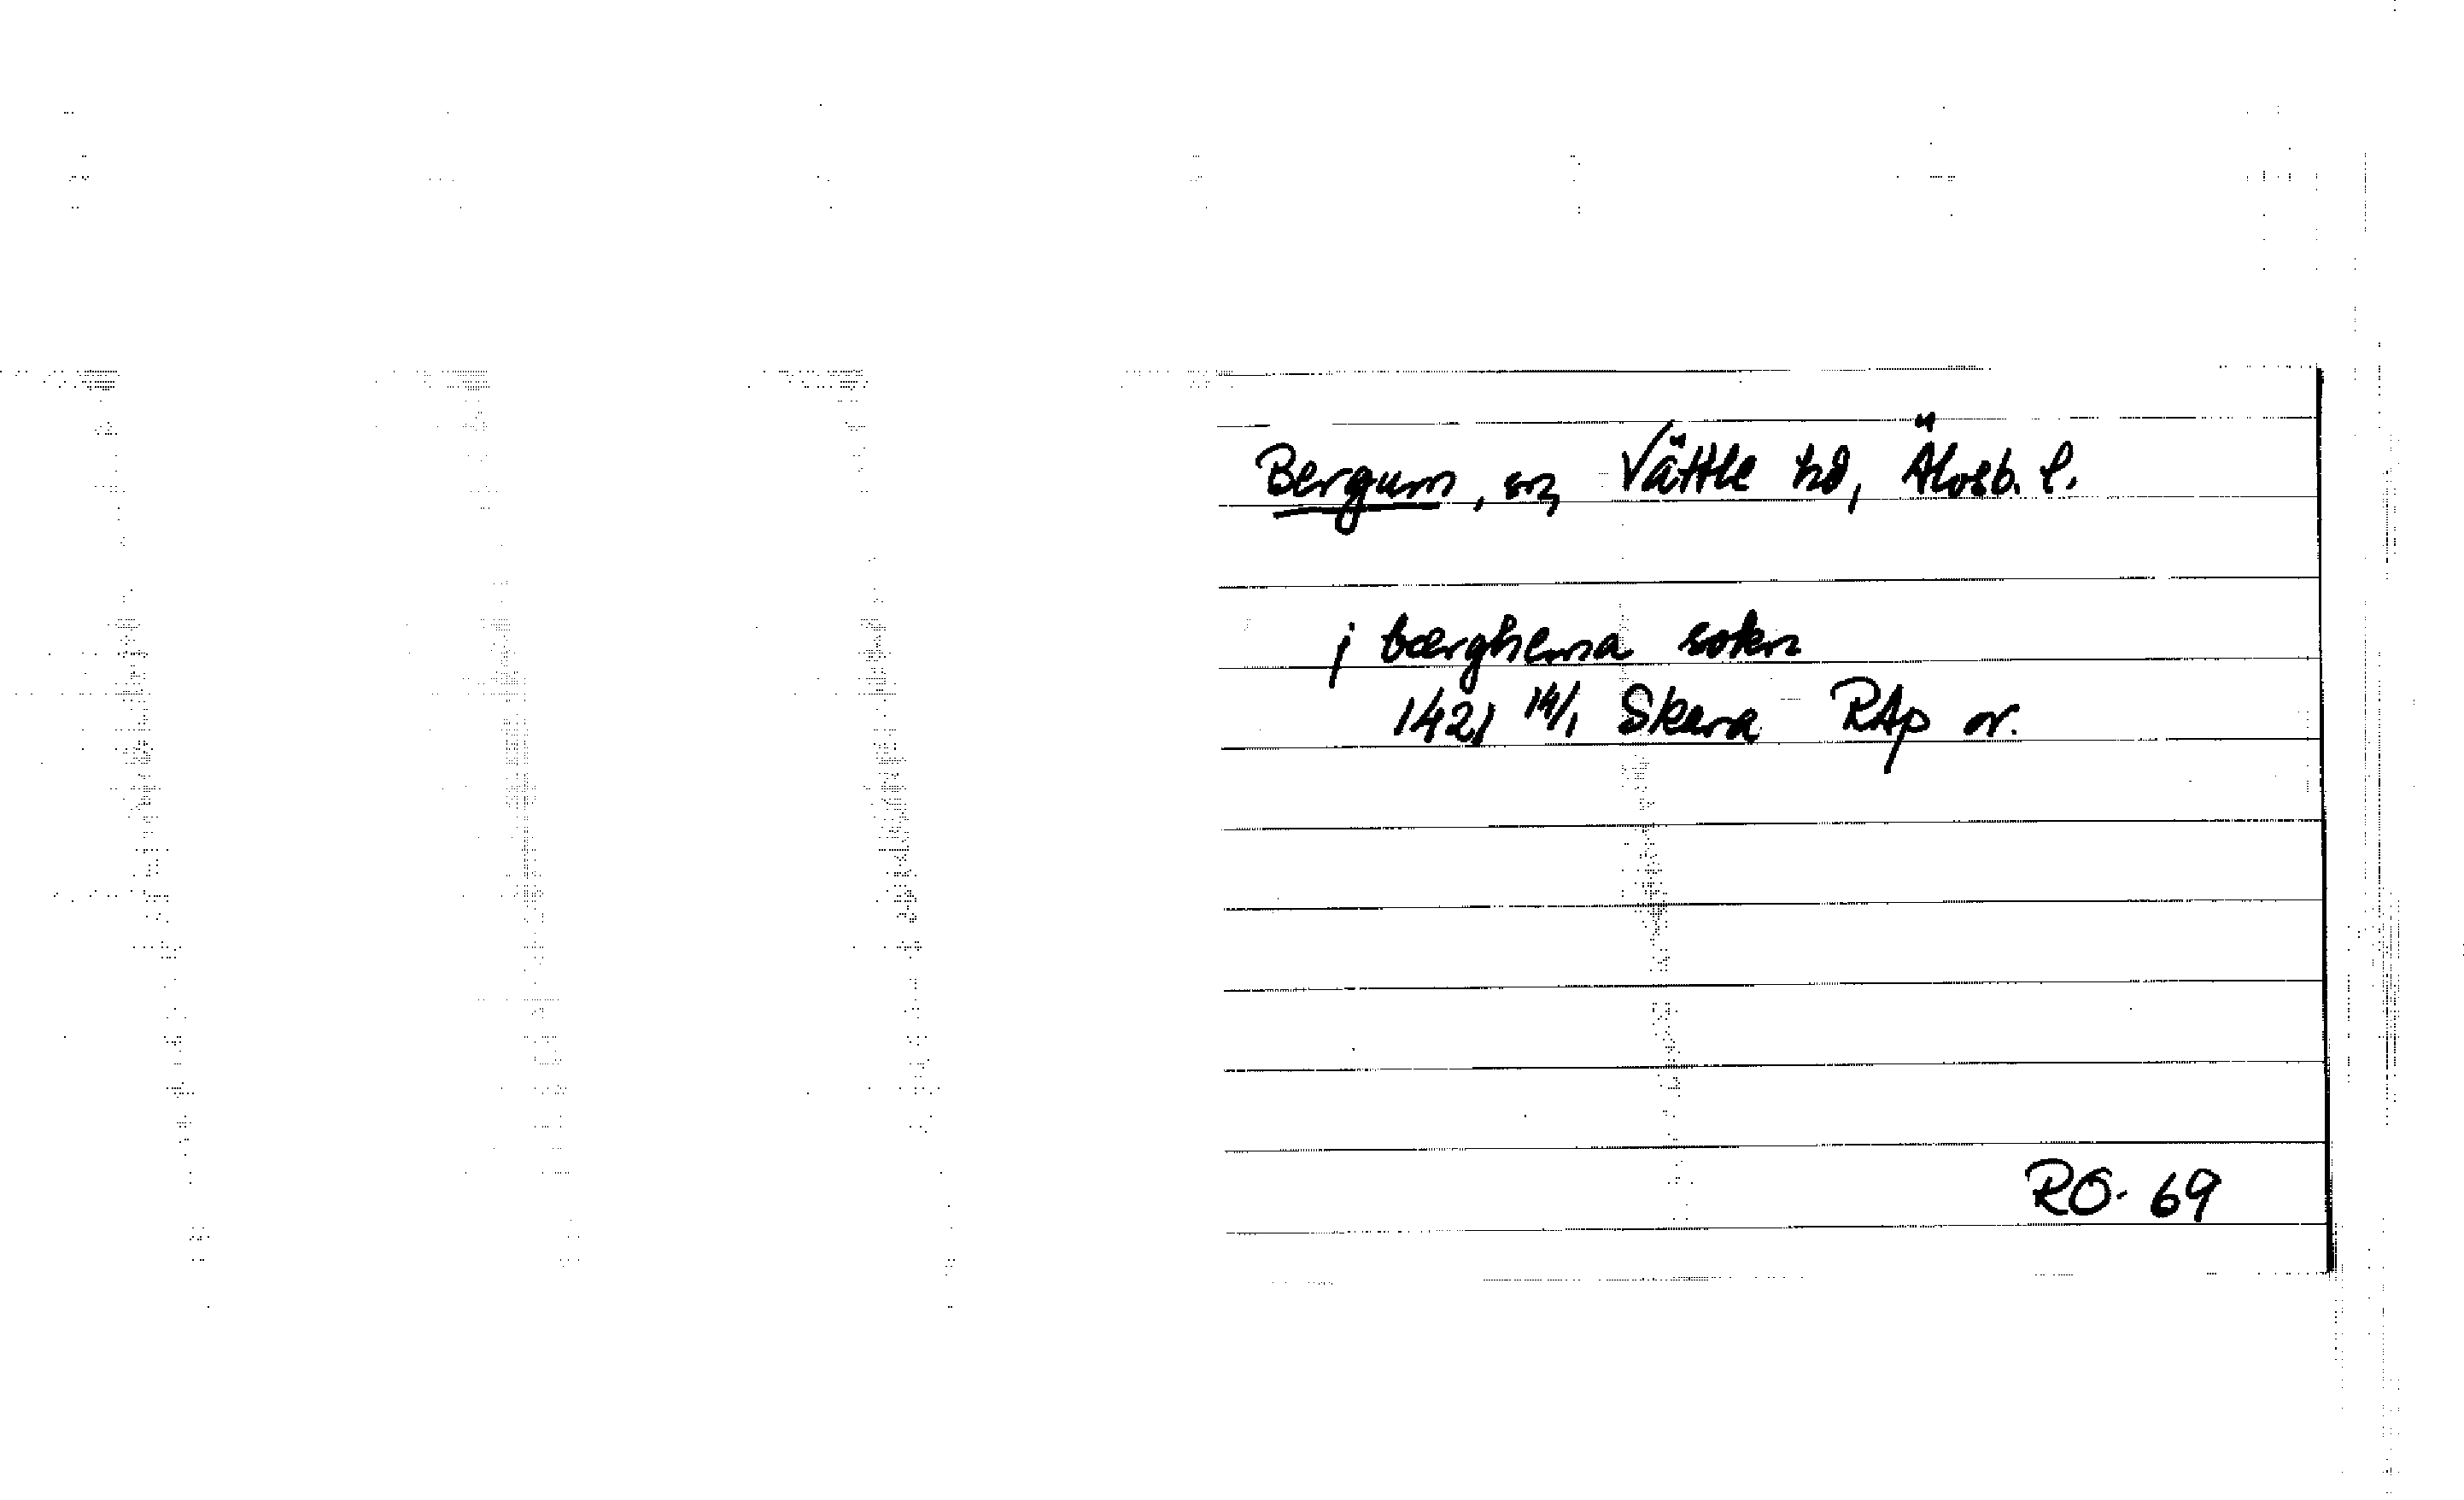 Bergum, sn, Vättle hd, Älvsb. l.
j bærghema sokn
1421 14/1 Skara RAp or.
RO. 69